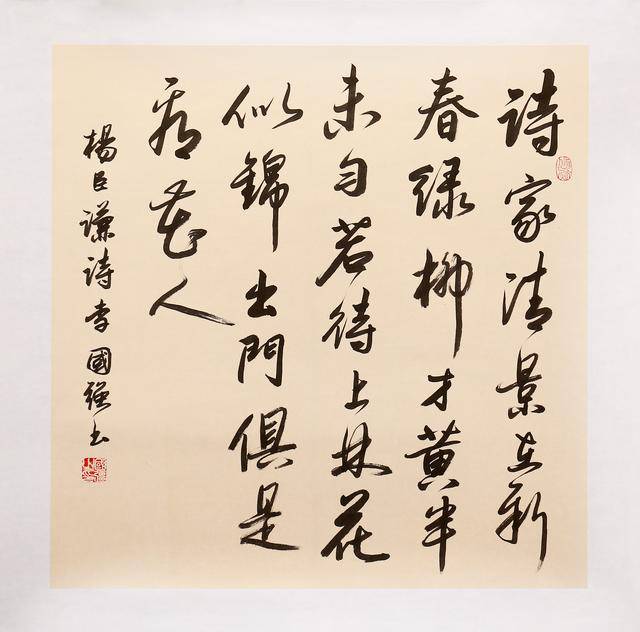 詩家清景在新
春绿柳才黄半
未匀若待上林花
似錦出門俱是
看花人
楊巨源詩李國强书